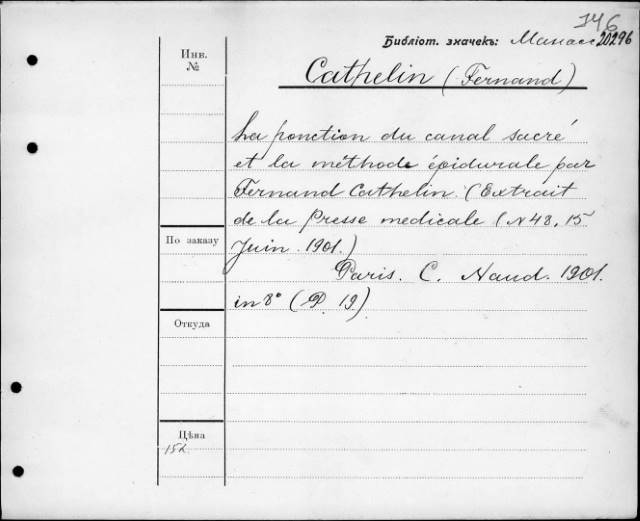 146
Библіот. значекъ: Манасс 20296
Инв.
№
Cathelin (Fernand)
La ponction du canal sacré
et la méthode épidurale par
Fernand Cathelin. (Extrait
de la Presse medicale (N 48, 15
Juin. 1901.)
По заказу
Paris. C. Naud. 1901.
in 8° (P. 19).
Откуда
Цѣна
15к